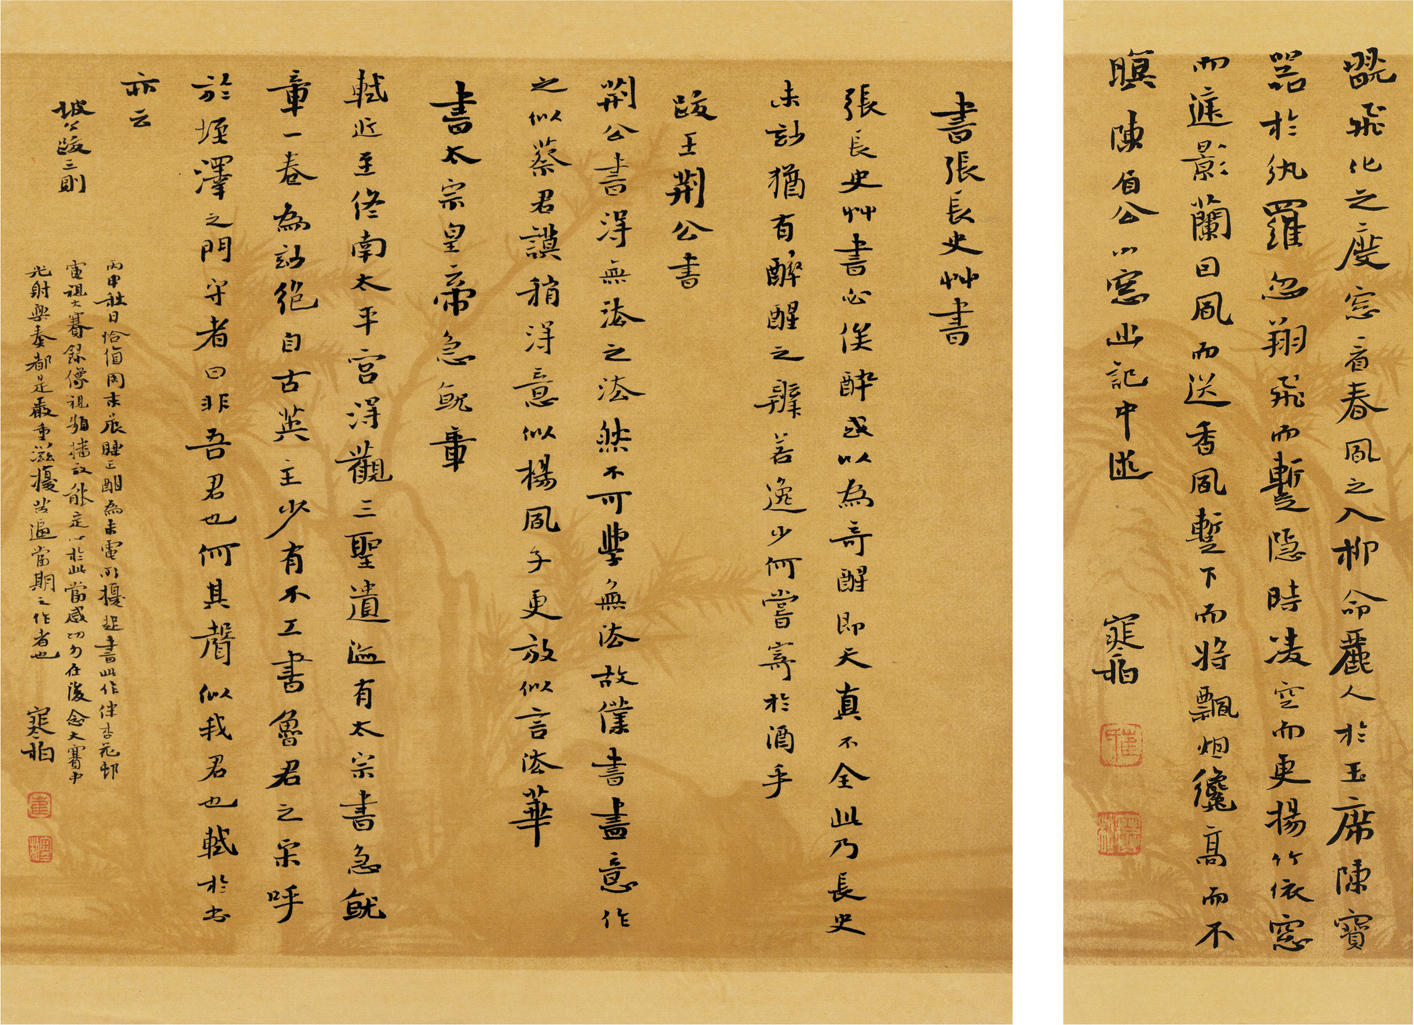 翫飛化之廋窓看春風之入柳命麗人於玉席陳寶
器於紈羅忽翔飛而蹔隱時凌空而更揚竹依窓
而遞影蘭因風而送香風蹔下而將飄烟纔高而不
瞑陳眉公小窓幽記中述
寉翁
書張長史艸書
張長史艸書必俟醉或以為奇醒即天真不全此乃長史
未妙猶有醉醒之辯若逸少何嘗寄於酒乎
跋王荊公書
荊公書得無法之法然不可學無法故僕書盡意作
之似蔡君謨稍得意似楊風子更放似言法華
書太宗皇帝急就章
軾近至終南太平宮得觀三聖遺迹有太宗書急就
章一卷為妙絕自古英主少有不工書魯君之宋呼
於垤澤之門守者曰非吾君也何其聲似我君也軾於書
亦云
坡公跋三則
丙申社日恰值周末晨睡三醒為來電所擾起書此作伴李
電視大賽錄像視頻播放能定心於此當感切勿在後念大賽中
光射與奏都是嚴重滋擾
當期之作者也
寉翁